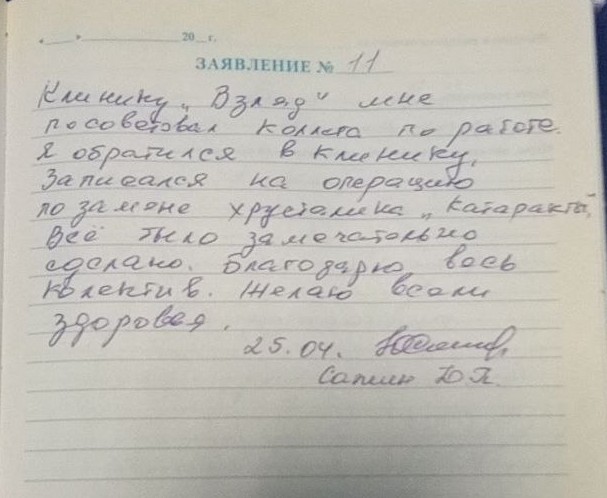 «___»______________20__г.
ЗАЯВЛЕНИЕ № 11
Клинику „Взгляд" мне
посоветовал коллега по работе.
Я обратился в клинику,
Записался на операцию
по замене хрусталика „Катаракты"
Всё было замечательно
сделано. Благодарю весь
колектив. Желаю всем
здоровья.
25.04.
Сапин Ю.П.